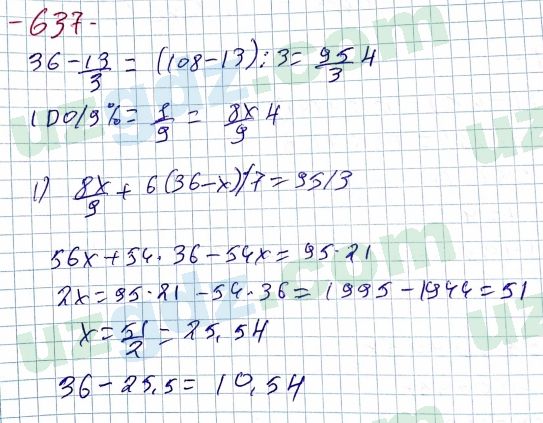 -637-
36 - 13/3 = (108-13):3 = 95/3 ч
100/9% = 1/9 = 8x/9 ч
1) 8x/9 + 6(36-x)/7 = 95/3
56x + 54·36 - 54x = 95·21
2x = 95·21 - 54·36 = 1995 - 1944 = 51
x = 51/2 = 25,5ч
36 - 25,5 = 10,5ч
uzgdz.com
uzgdz.com